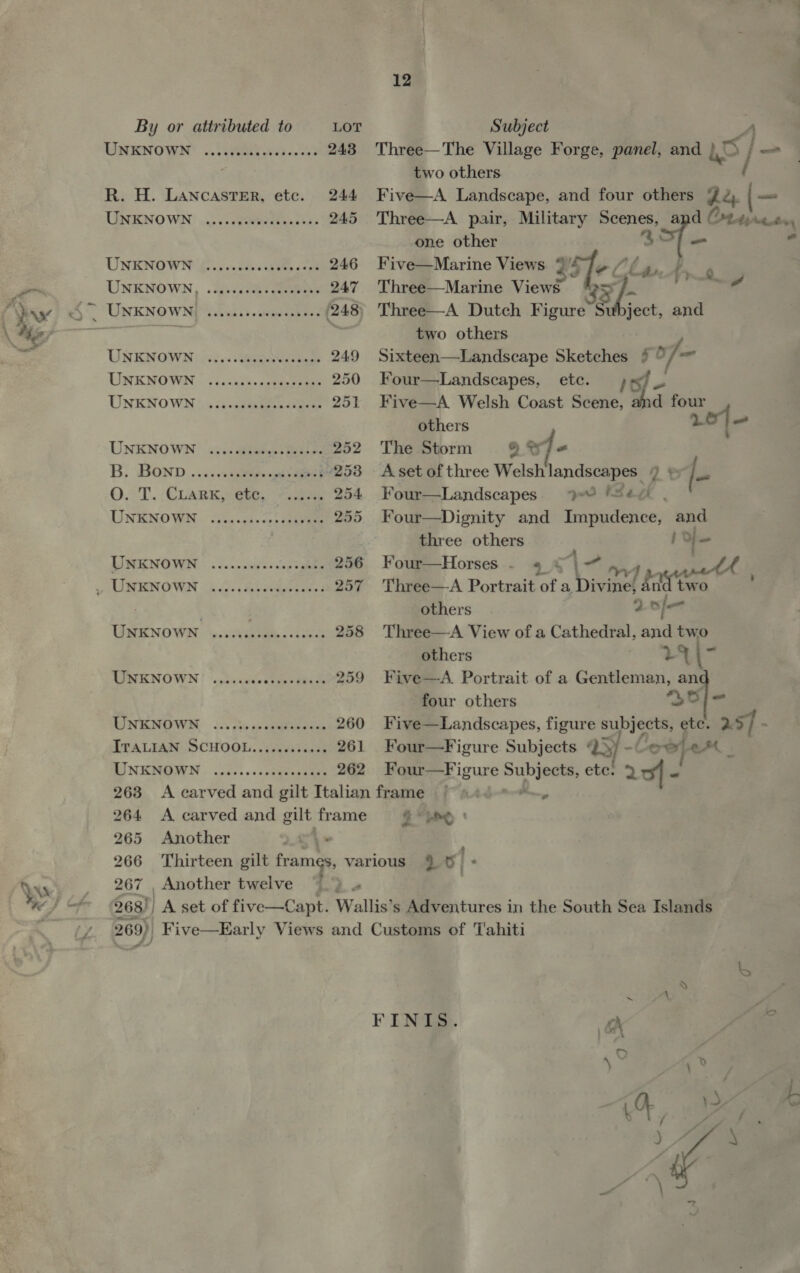 12
By or attributed to LOT Subject
UNKNOWN .................... 243 Three—The Village Forge, panel, and
two others
R. H. LANCASTER, etc. 244 Five—A Landscape, and four others
UNKNOWN .................... 245 Three—A pair, Military Scenes, and
one other
UNKNOWN .................... 246 Five—Marine Views
UNKNOWN .................... 247 Three—Marine Views
UNKNOWN .................... 248 Three—A Dutch Figure Subject, and
two others
UNKNOWN .................... 249 Sixteen—Landscape Sketches
UNKNOWN .................... 250 Four—Landscapes, etc.
UNKNOWN .................... 251 Five—A Welsh Coast Scene, and four
others
UNKNOWN .................... 252 The Storm
B. BOND .................... 253 A set of three Welsh landscapes
O. T. CLARK, etc. ...... 254 Four—Landscapes
UNKNOWN .................... 255 Four—Dignity and Impudence, and
three others
UNKNOWN .................... 256 Four—Horses
UNKNOWN .................... 257 Three—A Portrait of a Divine, and two
others
UNKNOWN .................... 258 Three—A View of a Cathedral, and two
others
UNKNOWN .................... 259 Five—A Portrait of a Gentleman, and
four others
UNKNOWN .................... 260 Five—Landscapes, figure subjects, etc.
ITALIAN SCHOOL............ 261 Four—Figure Subjects
UNKNOWN .................... 262 Four—Figure Subjects, etc.
263 A carved and gilt Italian frame
264 A carved and gilt frame
265 Another
266 Thirteen gilt frames, various
267 Another twelve
268 A set of five—Capt. Wallis's Adventures in the South Sea Islands
269 Five—Early Views and Customs of Tahiti
FINIS.